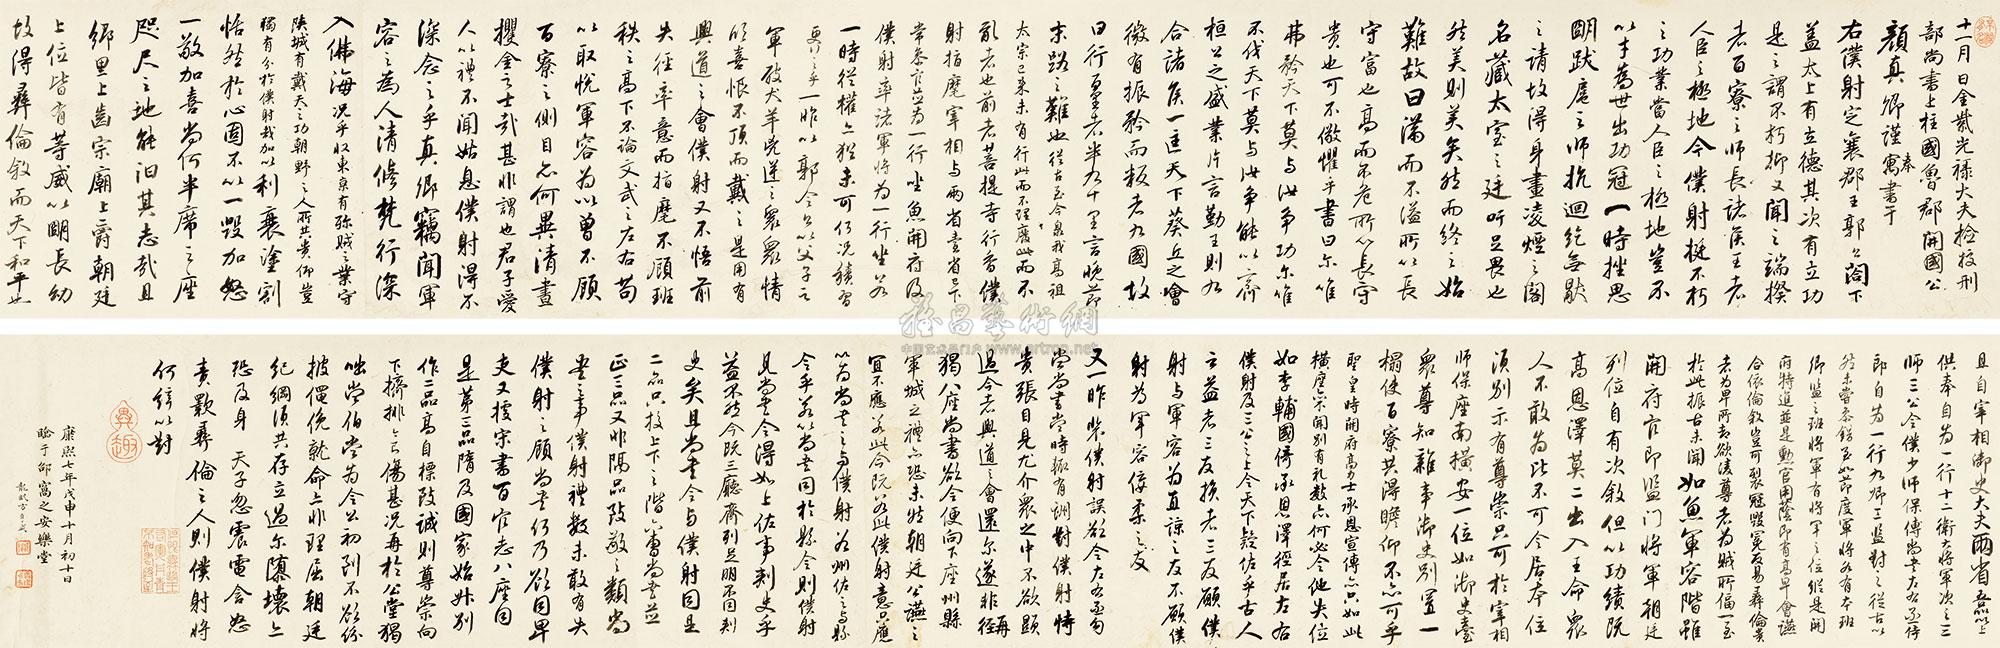 十一月日金紫光祿大夫檢校刑
部尚書上柱國魯郡開國公
顏真卿謹奉寓書于
右僕射定襄郡王郭公閤下
蓋太上有立德其次有立功
是之謂不朽抑又聞之端揆
者百寮之師長諸侯王者
人臣之極地今僕射挺不朽
之功業當人臣之極地豈不
以才為世出功冠一時挫思
明跋扈之師抗迴紇無猒
之請故得身畫凌煙之閣
名藏太室之廷吁足畏也
然美則美矣然而終之始
難故曰滿而不溢所以長
守富也高而不危所以長守
貴也可不儆懼乎書曰尔唯
弗矜天下莫与汝爭功尔唯
不伐天下莫与汝爭能以齊
桓公之盛業片言勤王則九
合諸侯一匡天下葵丘之會
微有振矜而叛者九國故
曰行百里者半九十里言晚節
末路之難也從古至今泉我高祖
太宗已來未有行此而不理廢此而不
亂者也前者菩提寺行香僕
射指麾宰相与兩省臺省已下
常參官並為一行坐魚開府及
僕射率諸軍將為一行坐若
一時從權亦猶未可何況積習
更行之乎一昨以郭令公以父子之
軍破犬羊兇逆之眾眾情
欣喜恨不頂而戴之是用有
興道之會僕射又不悟前
失徑率意而指麾不顧班
秩之高下不論文武之左右苟
以取悅軍容為心曾不顧
百寮之側目亦何異清晝
攫金之士哉甚非謂也君子愛
人以禮不聞姑息僕射得不
深念之乎真卿竊聞軍
容之為人清修梵行深
入佛海況乎收東京有殄賊之業守
陝城有戴天之功朝野之人所共貴仰豈
獨有分於僕射哉加以利衰塗割
恬然於心固不以一毀加怒
一敬加喜尚何半席之座
咫尺之地能汩其志哉且
鄉里上齒宗廟上爵朝廷
上位皆有等威以明長幼
故得彝倫敘而天下和平也
且自宰相御史大夫兩省五品以上
供奉自為一行十二衛大將軍次之三
師三公令僕少師保傅尚書左右丞侍
郎自為一行九卿三監對之從古以
然未嘗參錯至如節度軍將各有本班
卿監之班將軍有將軍之位縱是開
府特進並是勳官用蔭即有高卑會讌
合依倫敘豈可裂冠毀冕反易彝倫貴
者為卑所凌尊者為賊所偪一至
於此振古未聞如魚軍容階雖
開府官即監門將軍朝廷
列位自有次敘但以功績既
高恩澤莫二出入王命眾
人不敢為比不可令居本位
須別示有尊崇只可於宰相
師保座南橫安一位如御史臺
眾尊知雜事御史別置一
榻使百寮共得瞻仰不亦可乎
聖皇時開府高力士承恩宣傳亦只如此
橫座亦不聞別有禮數亦何必令他失位
如李輔國倚承恩澤徑居左右
僕射及三公之上令天下疑怪乎古人
云益者三友損者三友願僕
射与軍容為直諒之友不願僕
射為軍容佞柔之友
又一昨裴僕射誤欲令左右丞勾
當尚書當時輒有訓對僕射恃
貴張目見尤介眾之中不欲顯
過今者興道之會還尔遂非再
猲八座尚書欲令便向下座州縣
軍城之禮亦恐未然朝廷公讌之
宜不應若此今既若此僕射意只應
以為尚書之与僕射若州佐之与縣
令乎若以尚書同於縣令則僕射
見尚書令得如上佐事刺史乎
益不然今既三廳齊列足明不同刺
史矣且尚書令与僕射同是
二品只校上下之階六曹尚書並
正三品又非隔品致敬之類尚
書之事僕射禮數未敢有失
僕射之顧尚書仍乃欲同卑
吏又據宋書百官志八座同
是第三品隋及國家始升別
作二品高自標致誠則尊崇向
下擠排亦傷甚況再於公堂猲
咄常伯當為令公初到不欲紛
披僶俛就命亦非理屈朝廷
紀綱須共存立過尔隳壞亦
恐及身天子忽震電含怒
責斁彝倫之人則僕射將
何辭以對
康熙七年戊申十月初十日
臨于邵窩之安樂堂
雅昌藝術網
中国艺术品门户 www.artron.net